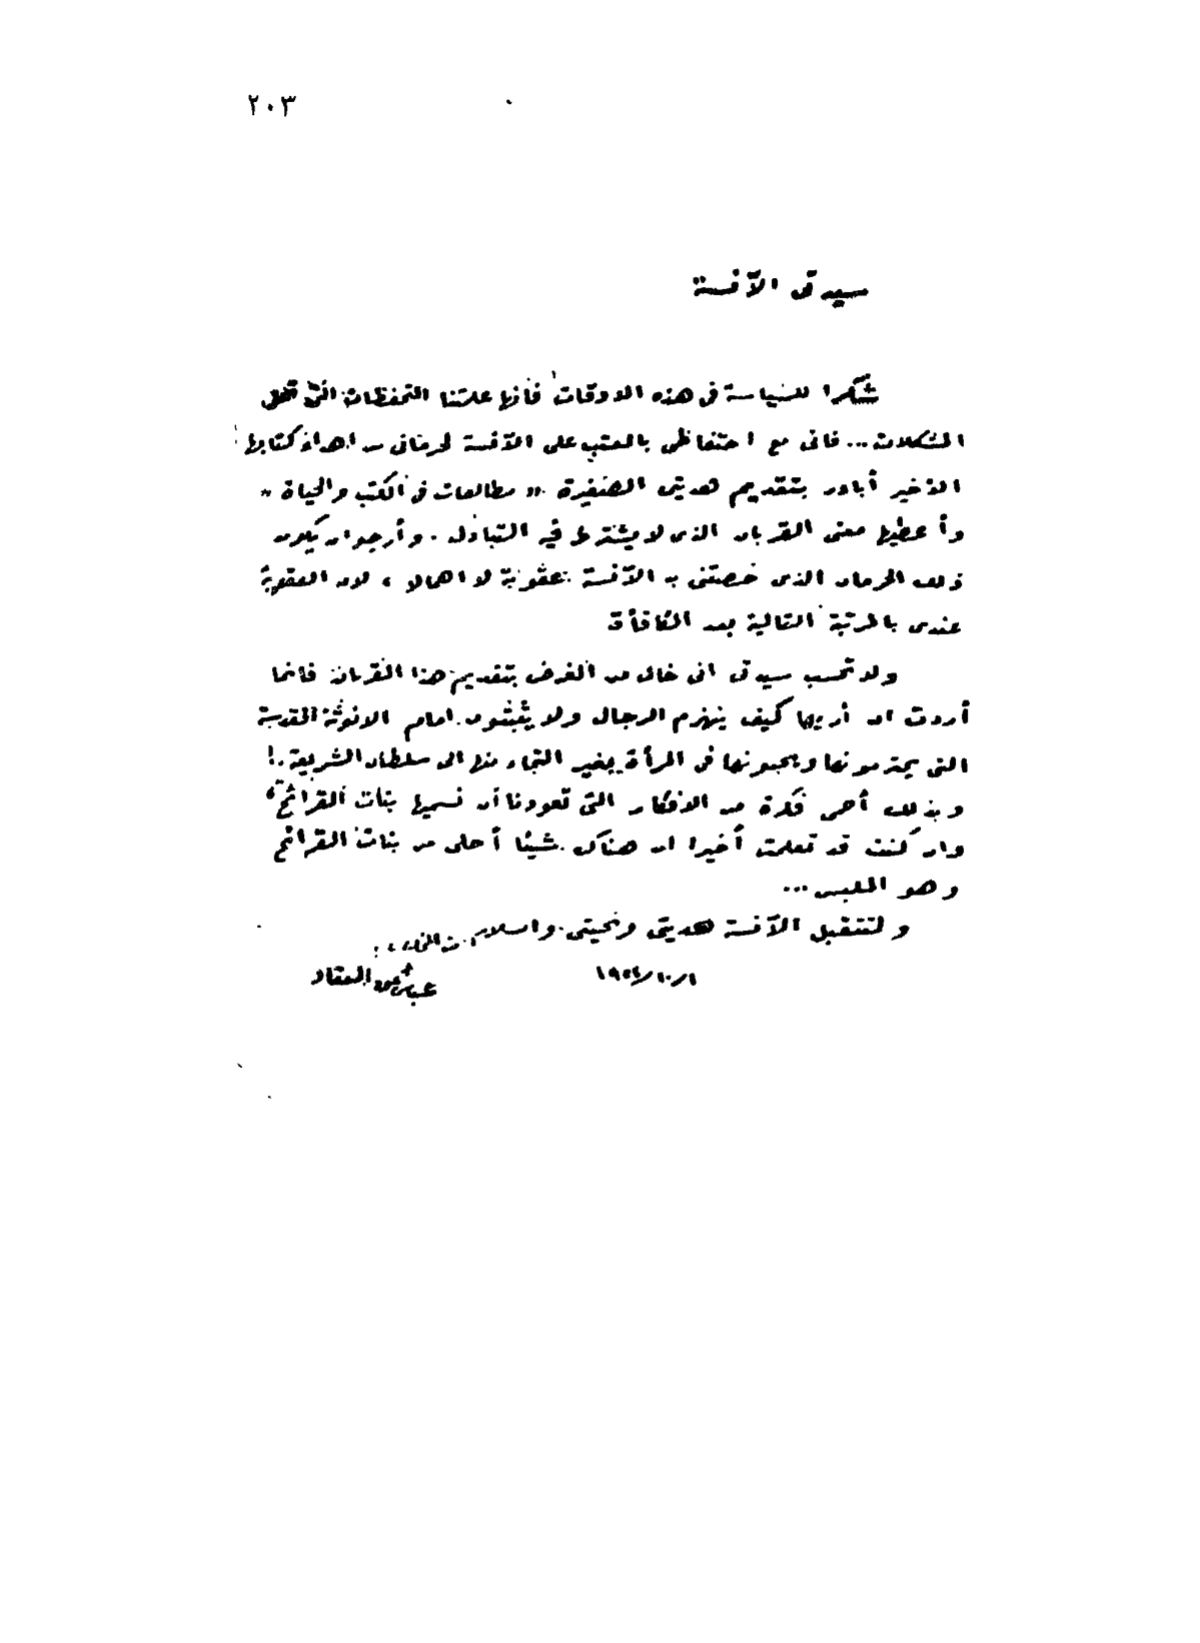 ٢٠٣
سيدتى الآنسة
شكرا للسياسة فى هذه الاوقات فانها علمتنا التحفظات التى تحل
المشكلات ... فانى مع احتفاظى بالعتب على الآنسة لحرمانى من اهداء كتابها
الاخير أبادر بتقديم هديتى الصغيرة « مطالعات فى الكتب والحياة »
وأعطيها معنى القربان الذى لا يشترط فيه التبادل . وأرجو ان يكون
ذلك الحرمان الذى خصتنى به الآنسة عقوبة لا اهمالا ، لان العقوبة
عندى بالمرتبة التالية بعد المكافأة
ولا تحسب سيدتى انى خال من الغرض بتقديم هذا القربان فانما
أردت ان أريها كيف ينهزم الرجال ولا يثبتون امام الانوثة المقدسة
التى يحترمونها ويحبونها فى المرأة بغير التجاء منها الى سلطان الشريعة . !
وبذلك أحمى فكرة من الافكار التى تعودنا أن نسميها بنات القرائح ،
وان كنت قد تعلمت أخيرا ان هناك شيئا أحلى من بنات القرائح
وهو الملبس ...
ولتتقبل الآنسة هديتى وتحيتى واسلام من
١٩٢٤/١٠/١
عباس محمود العقاد